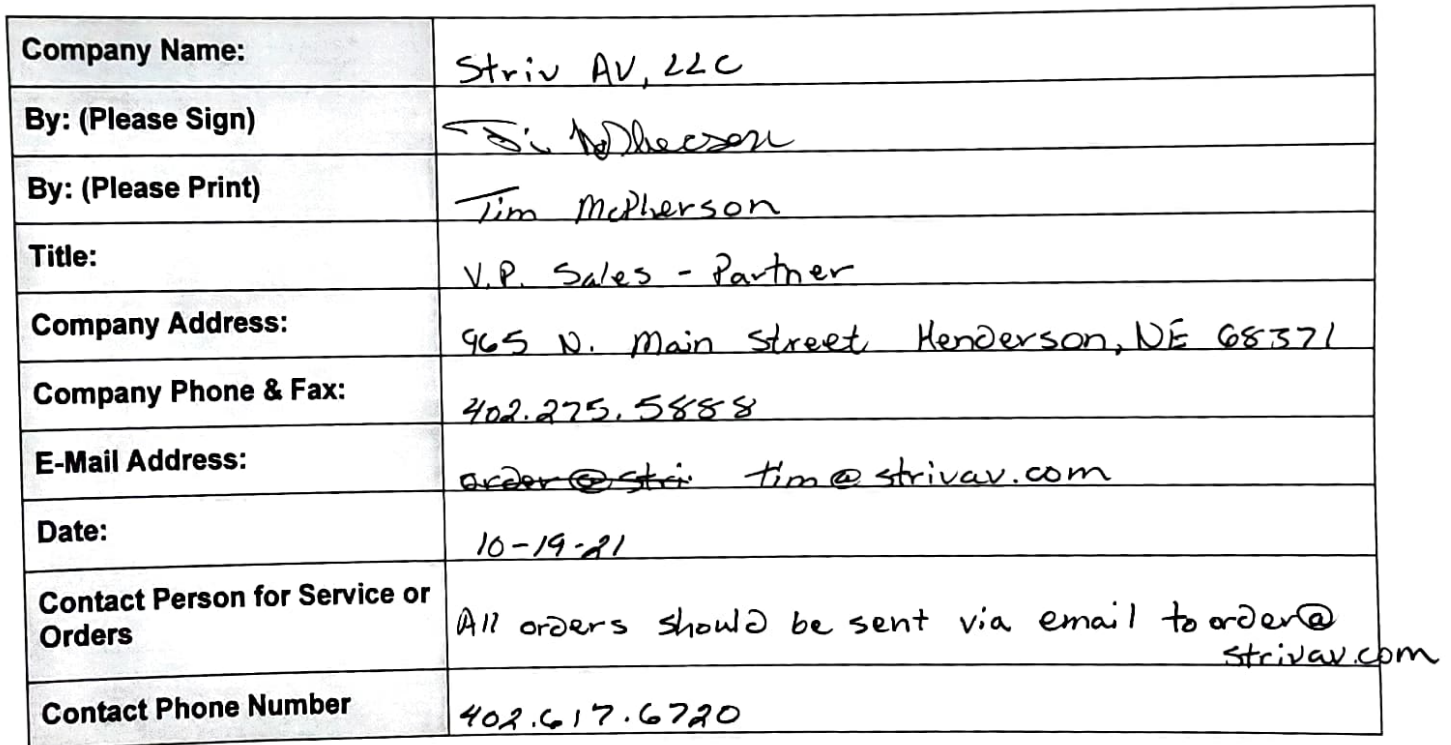 Company Name: Striv AV, LLC
By: (Please Sign)
By: (Please Print) Tim McPherson
Title: V.P. Sales - Partner
Company Address: 965 N. Main Street Henderson, NE 68371
Company Phone & Fax: 402.275.5888
E-Mail Address: order@stri tim@strivav.com
Date: 10-19-21
Contact Person for Service or
Orders
All orders should be sent via email to order@
strivav.com
Contact Phone Number 402.617.6720